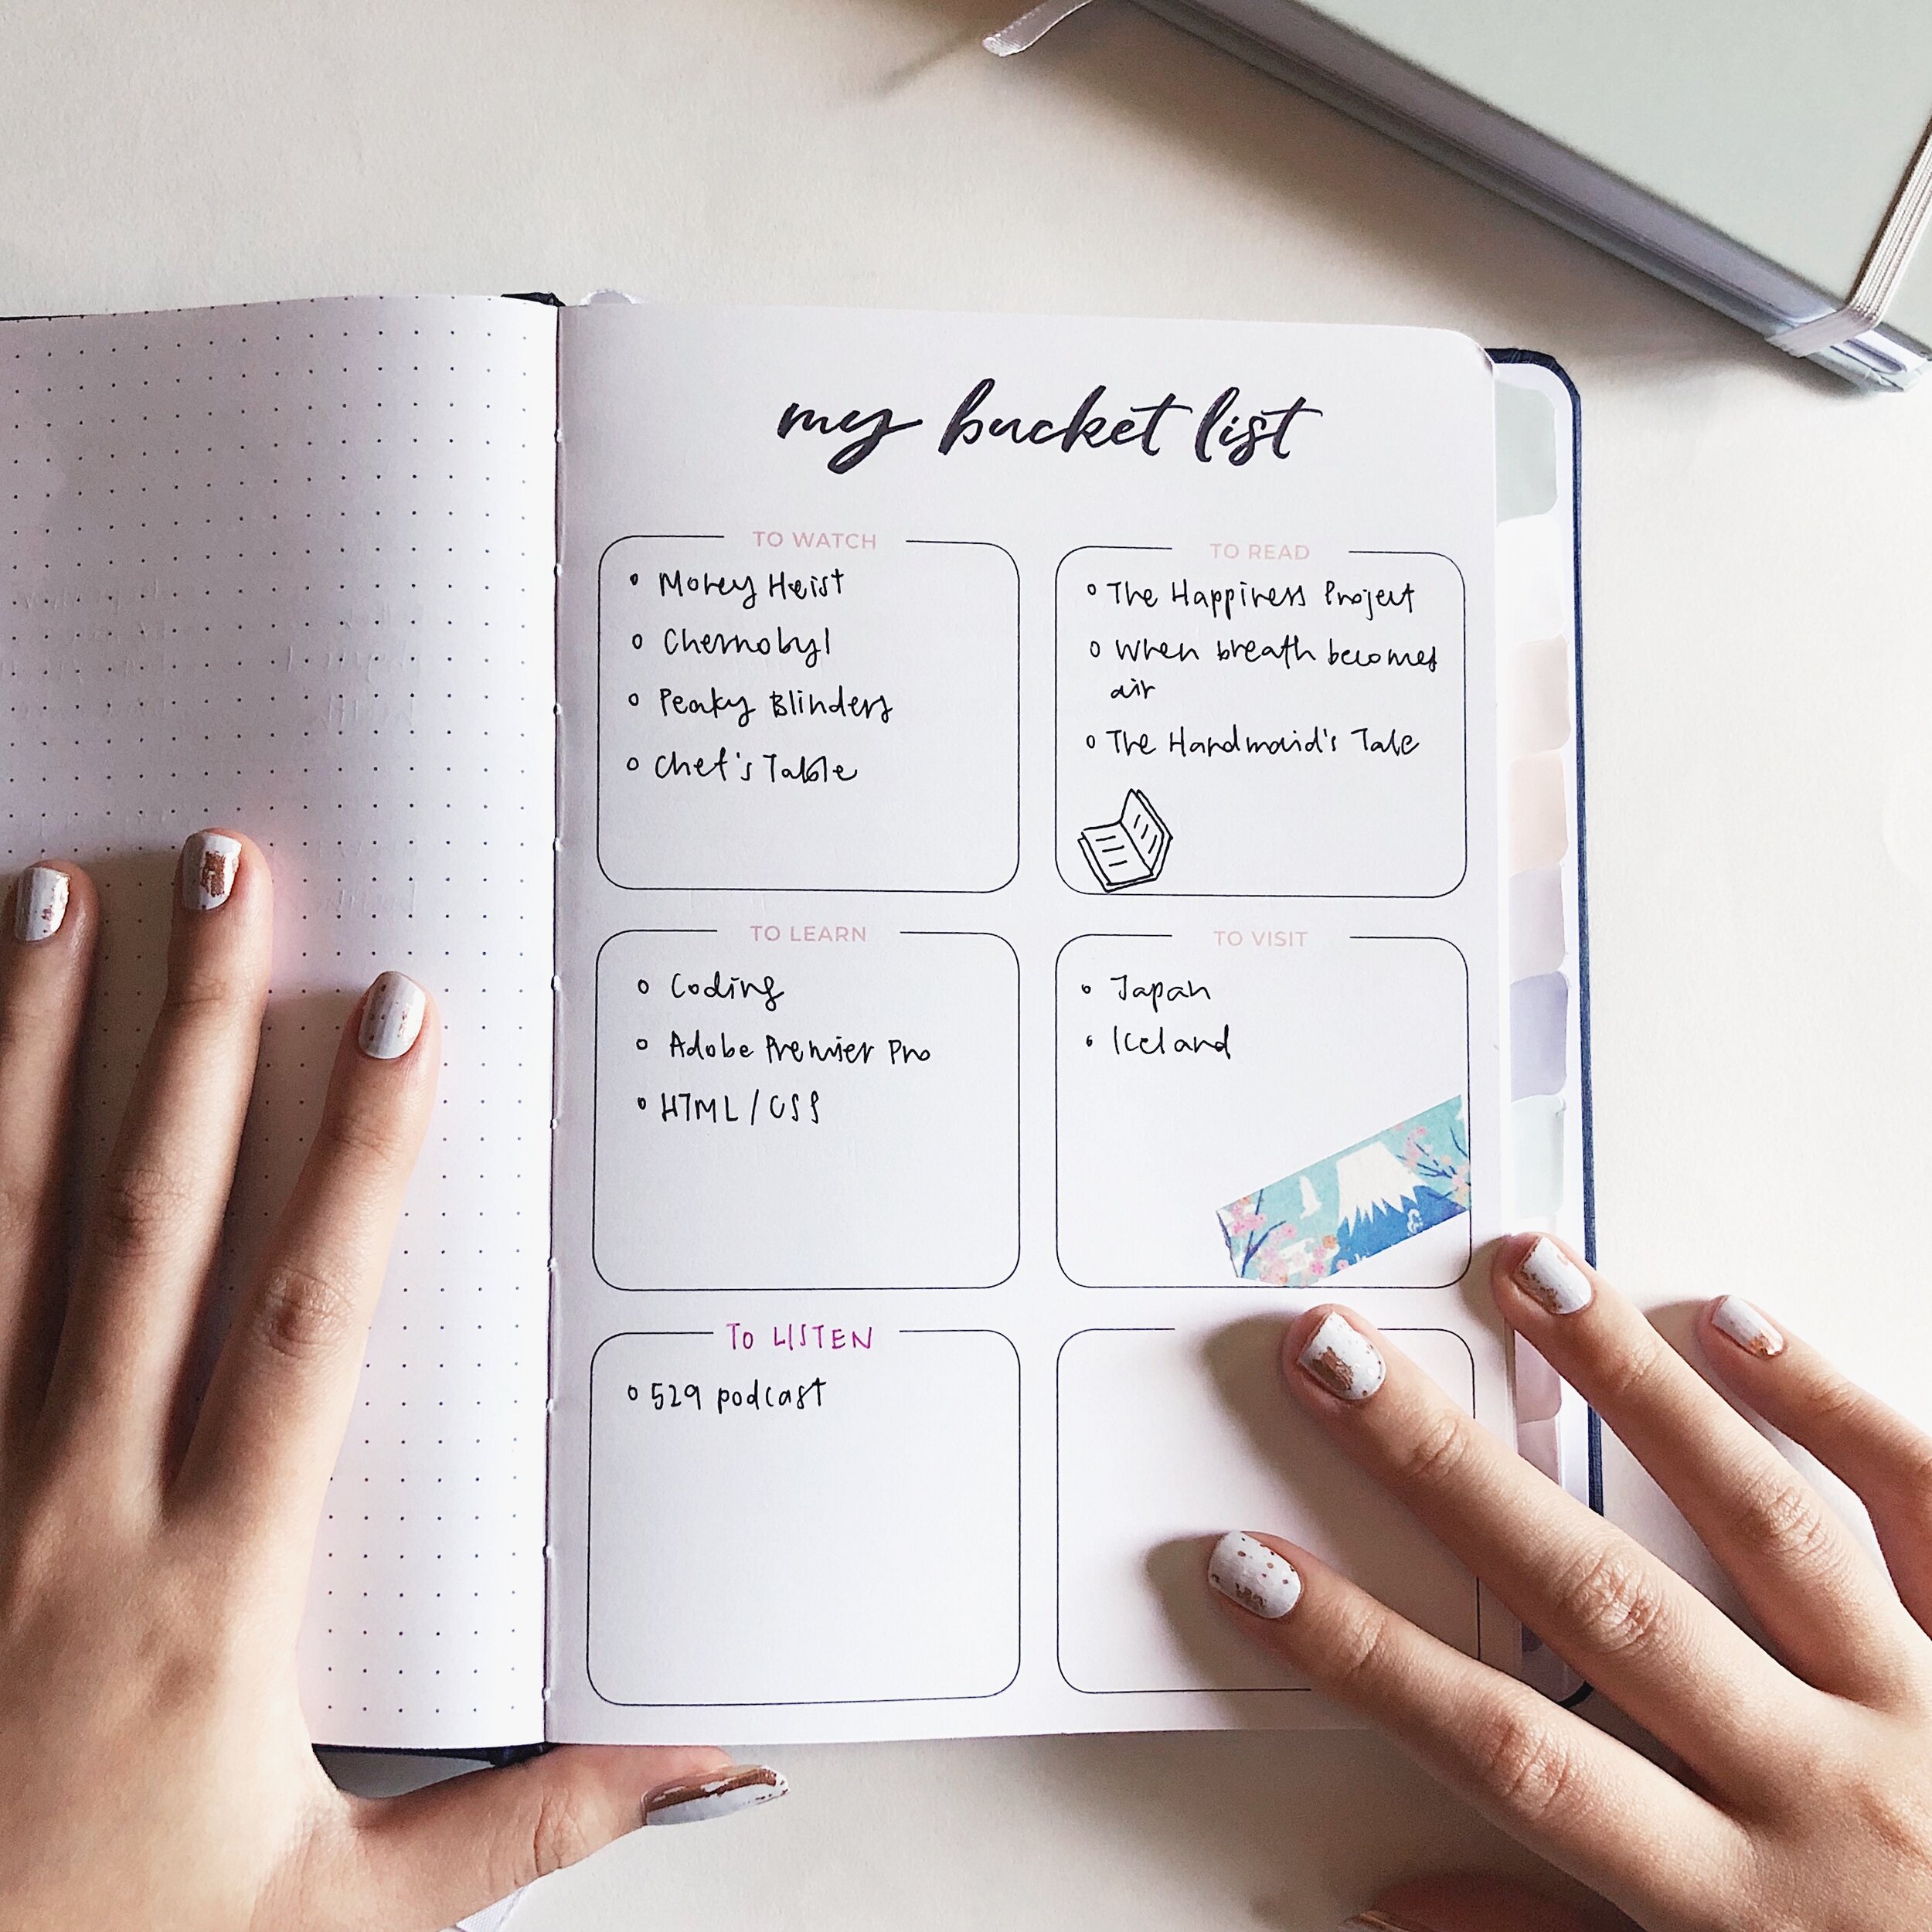 my bucket list
TO WATCH
Money Heist
Chernobyl
Peaky Blinders
Chef's Table
TO READ
The Happiness Project
When breath becomes
air
The Handmaid's Tale
TO LEARN
Coding
Adobe Premier Pro
HTML / CSS
TO VISIT
Japan
Iceland
TO LISTEN
529 podcast